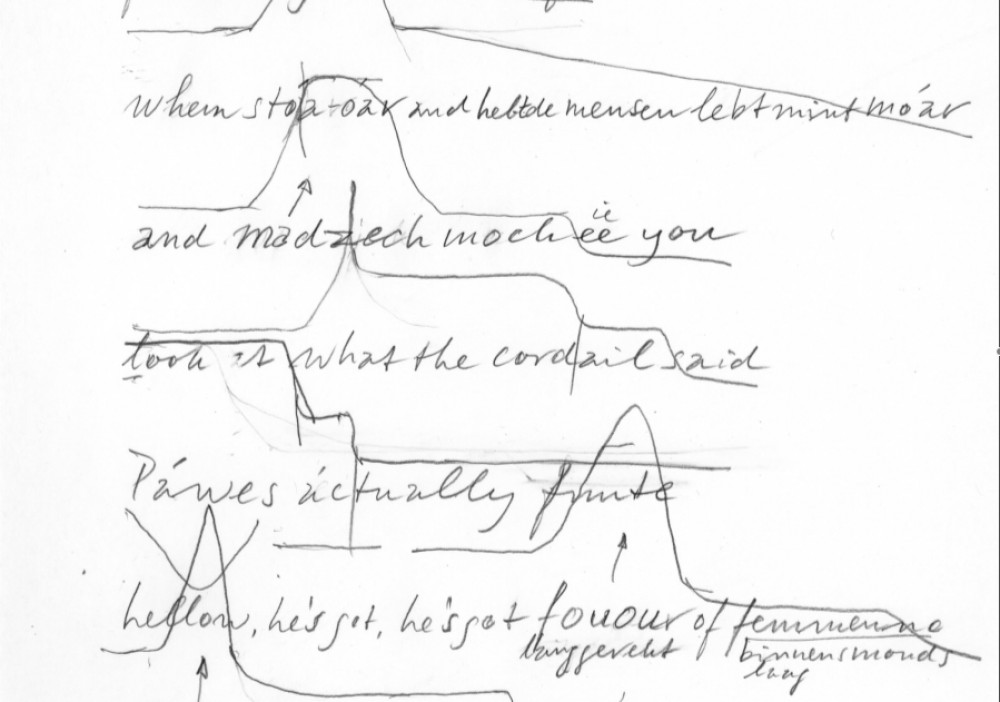 whem stoa-oar and hebtde mensen lebt mint móar
and madzech moch ëë you
ië
look it what the cordail said
Páwes áctually funte
hellow, he's got, he's got fouour of femmenne
langgerekt binnensmonds
laag